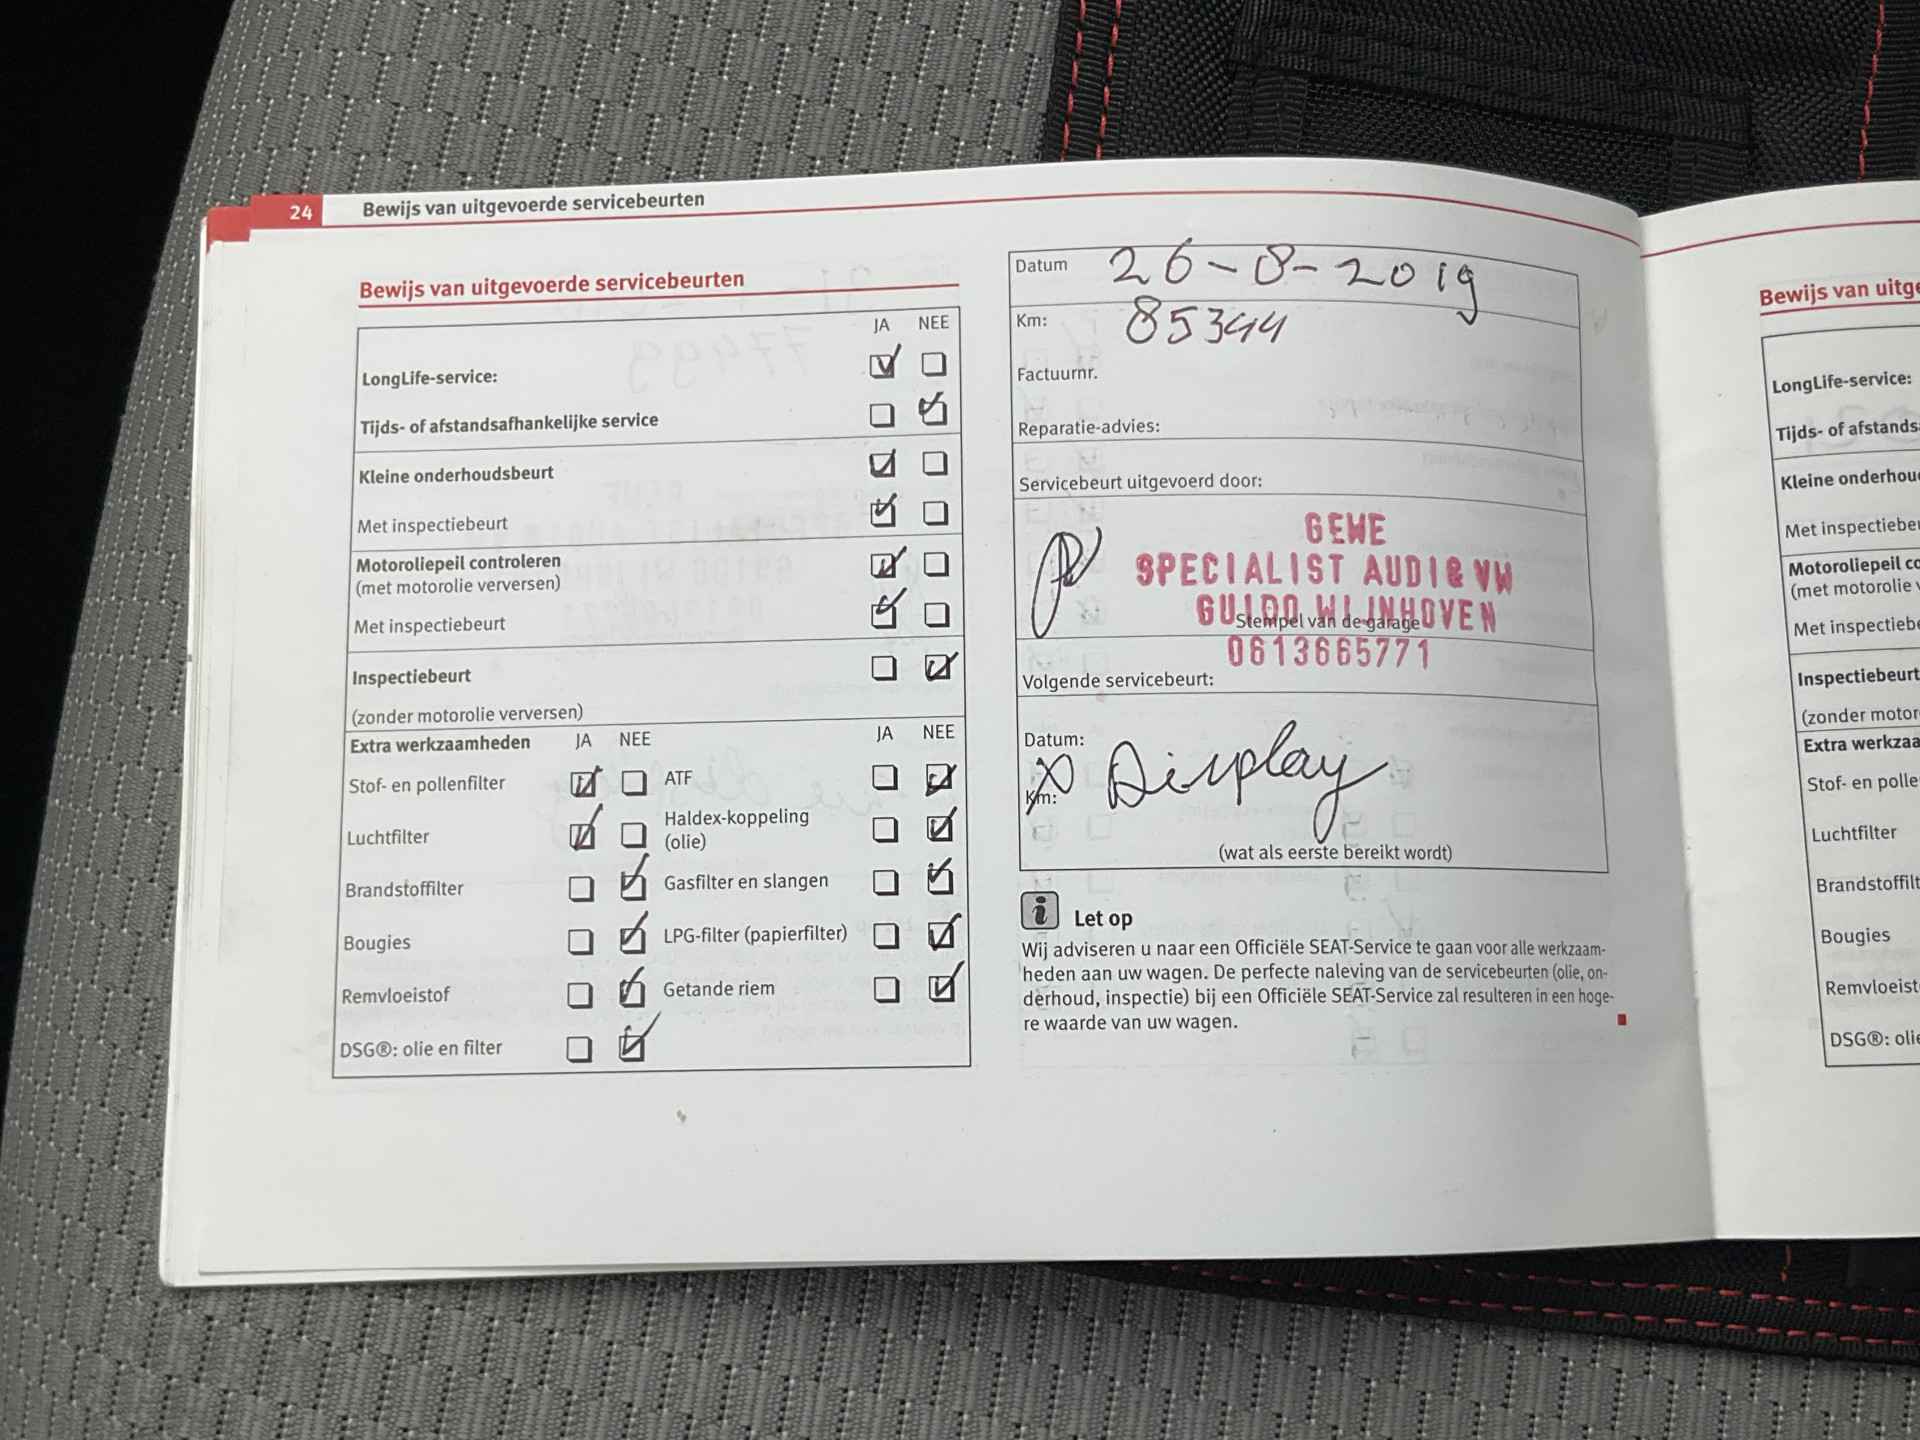 24 Bewijs van uitgevoerde servicebeurten
Bewijs van uitgevoerde servicebeurten
JA NEE
LongLife-service:
Tijds- of afstandsafhankelijke service
Kleine onderhoudsbeurt
Met inspectiebeurt
Motoroliepeil controleren
(met motorolie verversen)
Met inspectiebeurt
Inspectiebeurt
(zonder motorolie verversen)
Extra werkzaamheden JA NEE JA NEE
Stof- en pollenfilter ATF
Luchtfilter Haldex-koppeling
(olie)
Brandstoffilter Gasfilter en slangen
Bougies LPG-filter (papierfilter)
Remvloeistof Getande riem
DSG®: olie en filter
Datum 26-8-2019
Km: 85344
Factuurnr.
Reparatie-advies:
Servicebeurt uitgevoerd door:
GEWE
SPECIALIST AUDI & VW
GUIDO WIJNHOVEN
Stempel van de garage
0613665771
Volgende servicebeurt:
Datum:
Display
Km:
(wat als eerste bereikt wordt)
i Let op
Wij adviseren u naar een Officiële SEAT-Service te gaan voor alle werkzaam-
heden aan uw wagen. De perfecte naleving van de servicebeurten (olie, on-
derhoud, inspectie) bij een Officiële SEAT-Service zal resulteren in een hoge-
re waarde van uw wagen.
Bewijs van uitge
LongLife-service:
Tijds- of afstands
Kleine onderhou
Met inspectiebe
Motoroliepeil co
(met motorolie v
Met inspectiebe
Inspectiebeurt
(zonder motor
Extra werkzaa
Stof- en polle
Luchtfilter
Brandstoffilt
Bougies
Remvloeist
DSG®: olie